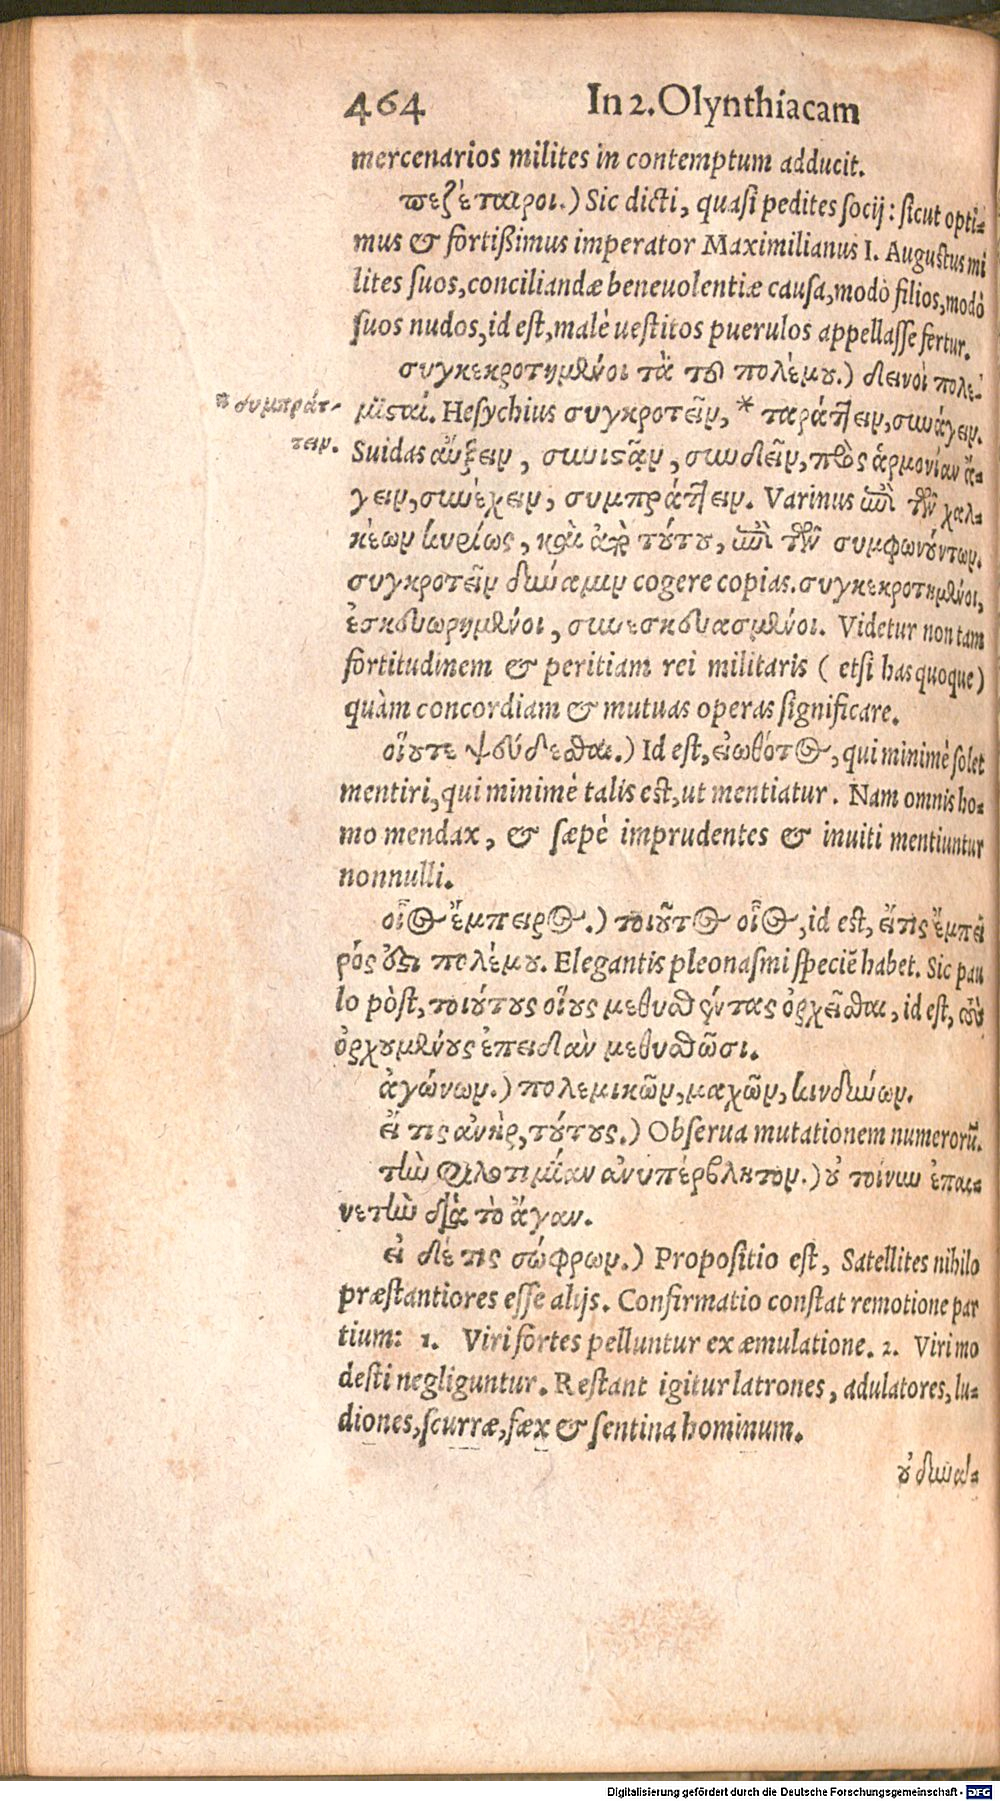 464 In 2. Olynthiacam
mercenarios milites in contemptum adducit.
πεζέταιροι.) Sic dicti, quasi pedites socij: sicut opti-
mus & fortißimus imperator Maximilianus I. Augustus mi
lites suos, conciliandæ beneuolentiæ causa, modò filios, modò
suos nudos, id est, malè uestitos puerulos appellasse fertur.
συγκεκροτημένοι τὰ τοῦ πολέμου.) δεινοὶ πολε-
μισταί. Hesychius συγκροτεῖν, * ταράττειν, συνάγειν.
* συμπράτ-
τειν.
Suidas αὔξειν, συνιστᾷν, συνδεῖν, πρὸς ἁρμονίαν ἄ-
γειν, συνέχειν, συμπράττειν. Varinus ἐπὶ τῶν χαλ-
κέων κυρίως, καὶ ἀπὸ τούτου, ἐπὶ τῶν συμφωνούντων.
συγκροτεῖν δύναμιν cogere copias. συγκεκροτημένοι,
ἐσκευωρημένοι, συνεσκευασμένοι. Videtur non tam
fortitudinem & peritiam rei militaris ( etsi has quoque )
quàm concordiam & mutuas operas significare.
οἵουτε ψεύδεσθαι.) Id est, εἰωθότος, qui minimè solet
mentiri, qui minimè talis est, ut mentiatur. Nam omnis ho-
mo mendax, & sæpè imprudentes & inuiti mentiuntur
nonnulli.
οἷος ἔμπειρος.) τοιοῦτος οἷος, id est, εἴ τις ἔμπει
ρός ἐστι πολέμου. Elegantis pleonasmi speciē habet. Sic pau
lo pòst, τοιούτους οἵους μεθυσθέντας ὀρχεῖσθαι, id est,
ὀρχουμένους ἐπειδὰν μεθυσθῶσι.
ἀγώνων.) πολεμικῶν, μαχῶν, κινδύνων.
εἴ τις ἀνὴρ, τούτους.) Obserua mutationem numerorū.
τὴν φιλοτιμίαν ἀνυπέρβλητον.) οὐ τοίνυν ἐπαι-
νετὴν διὰ τὸ ἄγαν.
εἰ δέ τις σώφρων.) Propositio est, Satellites nihilo
præstantiores esse alijs. Confirmatio constat remotione par
tium: 1. Viri fortes pelluntur ex æmulatione. 2. Viri mo
desti negliguntur. Restant igitur latrones, adulatores, lu-
diones, scurræ, fæx & sentina hominum.
οὐ δυνά-
Digitalisierung gefördert durch die Deutsche Forschungsgemeinschaft - DFG